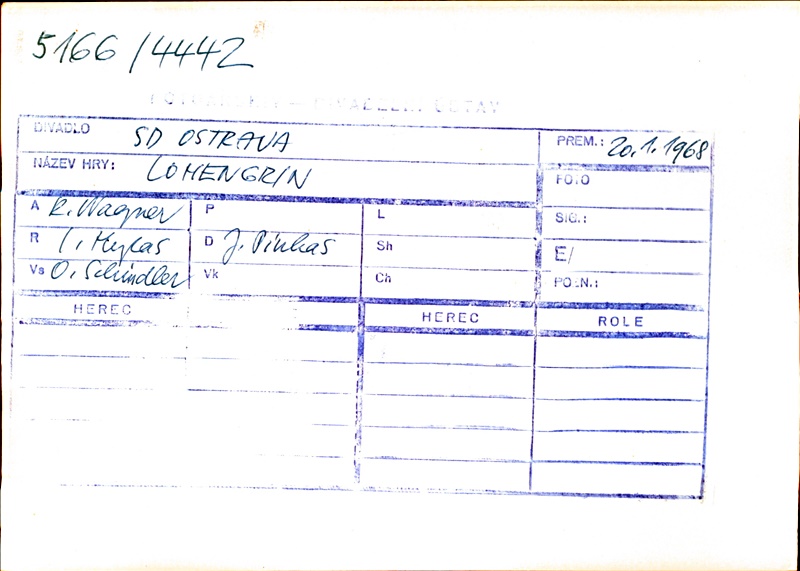 5166/4442
FOTOARCHIV – DIVADELNÍ ÚSTAV
DIVADLO SD OSTRAVA PREM.: 20.1.1968
NÁZEV HRY: LOHENGRIN FOTO
A R. Wagner P L SIG.:
R I. Hylas D J. Pinkas Sh E/
Vs O. Schindler Vk Ch POZN.:
HEREC HEREC ROLE